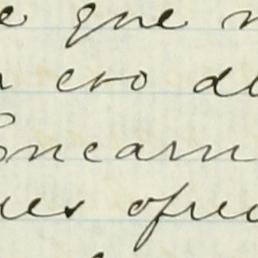 e que
eso de
Encarn
ues ofrec